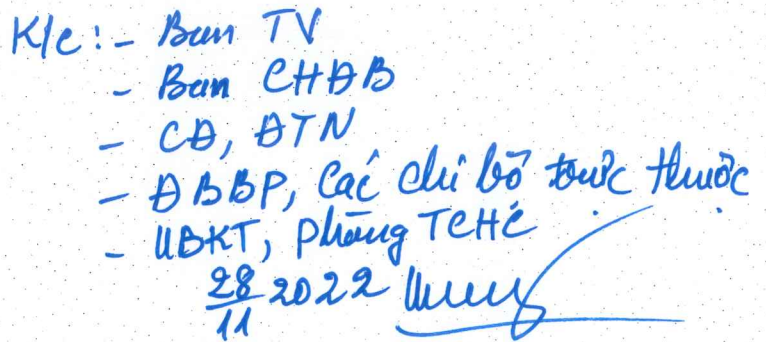 K/c: - Ban TV
- Ban CHĐB
- CĐ, ĐTN
- ĐBBP, Các chi bộ trực thuộc
- UBKT, phòng TCHC
28/11 2022